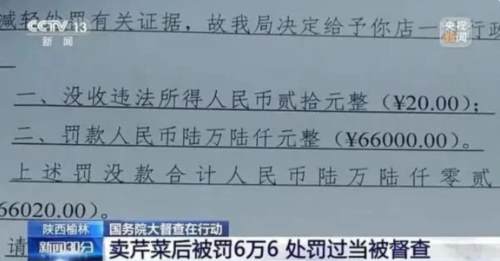 CCTV 13
新闻
央视
新闻
减轻处罚有关证据，故我局决定给予你店 行政
一、没收违法所得人民币贰拾元整（¥20.00）；
二、罚款人民币陆万陆仟元整（¥66000.00）。
上述罚没款合计人民币陆万陆仟零贰
66020.00）。
陕西榆林 国务院大督查在行动
新闻30分 卖芹菜后被罚6万6 处罚过当被督查
请